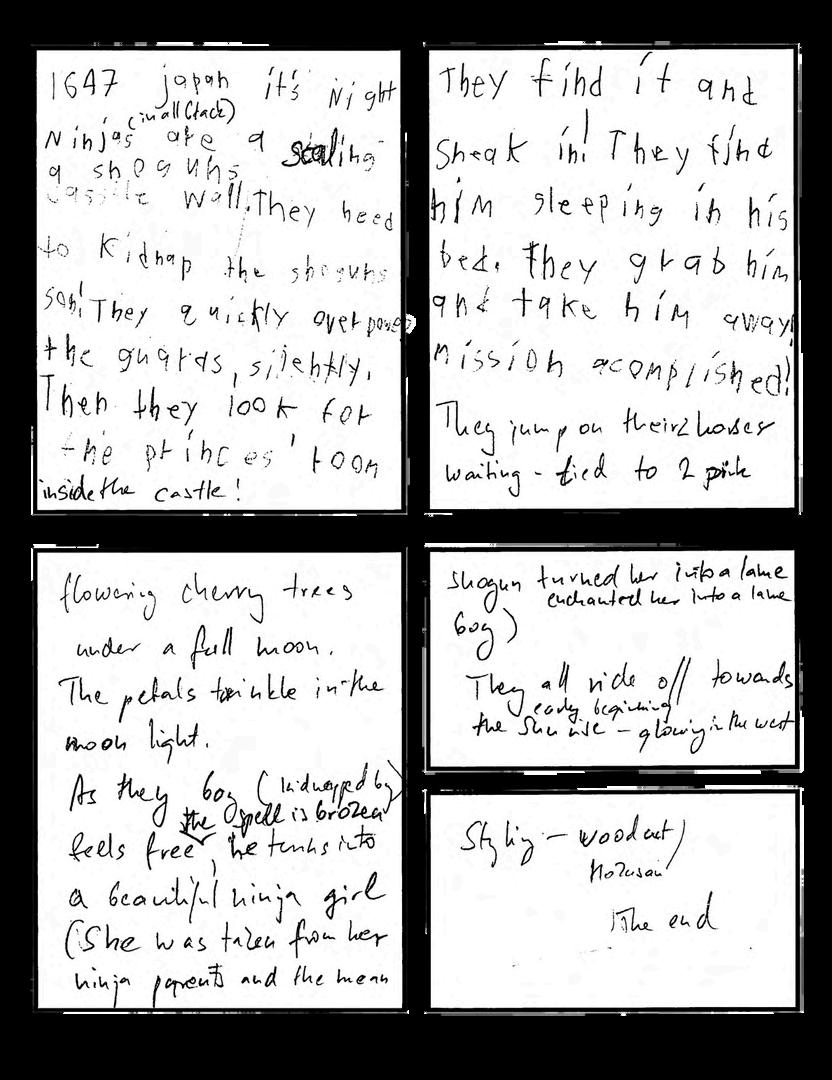 1647 japan it's Night
(in all black)
Ninjas are a scaling
a shoguns
cassile wall. They need
to kidnap the shoguns
son! They quickly overpower
the guards, silently.
Then they look for
the princes' room
inside the castle!
They find it and
sneak in! They find
him sleeping in his
bed. They grab him
and take him away!
mission acomplished!
They jump on their 2 horses
waiting - tied to 2 pink
flowering cherry trees
under a full moon.
The petals twinkle in the
moon light.
As they boy (kidnapped by)
the spell is brozen
feels free, he turns into
a beautiful ninja girl
(She was tazen from her
ninja parents and the mean
shogun turned her into a lame
enchanted her into a lame
boy)
They all ride off towards
early beginning
the sun rise - glowing in the west
Styling - woodcut /
Hozusai
The end